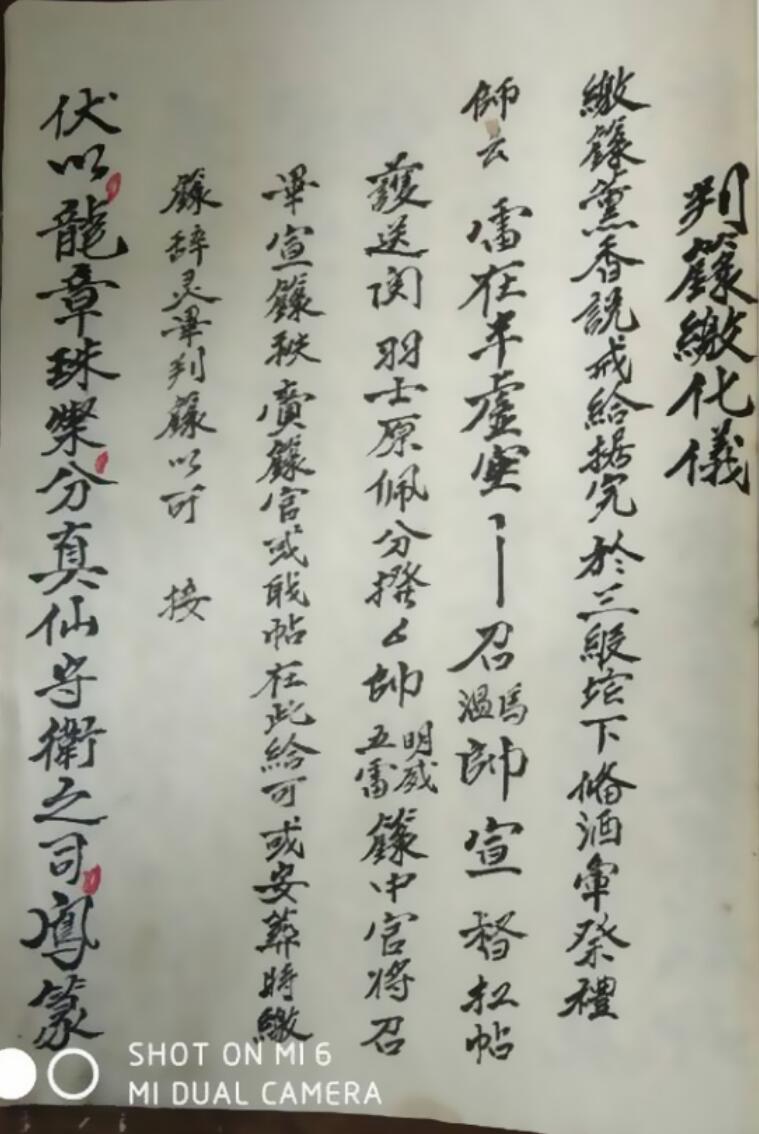 判籙繳化儀
繳籙薰香説戒給据完於三級坛下俻酒荤祭禮
師云 雷在半虚空 召馬溫帥宣 督扛帖
護送関羽士原佩分撥 帥明威五雷籙中官将召
畢宣籙秩賫籙官或戝帖在此給可或安葬時繳
籙辞灵畢判籙以可 接
伏以龍章珠燦分真仙守衛之司鳳篆
SHOT ON MI 6
MI DUAL CAMERA